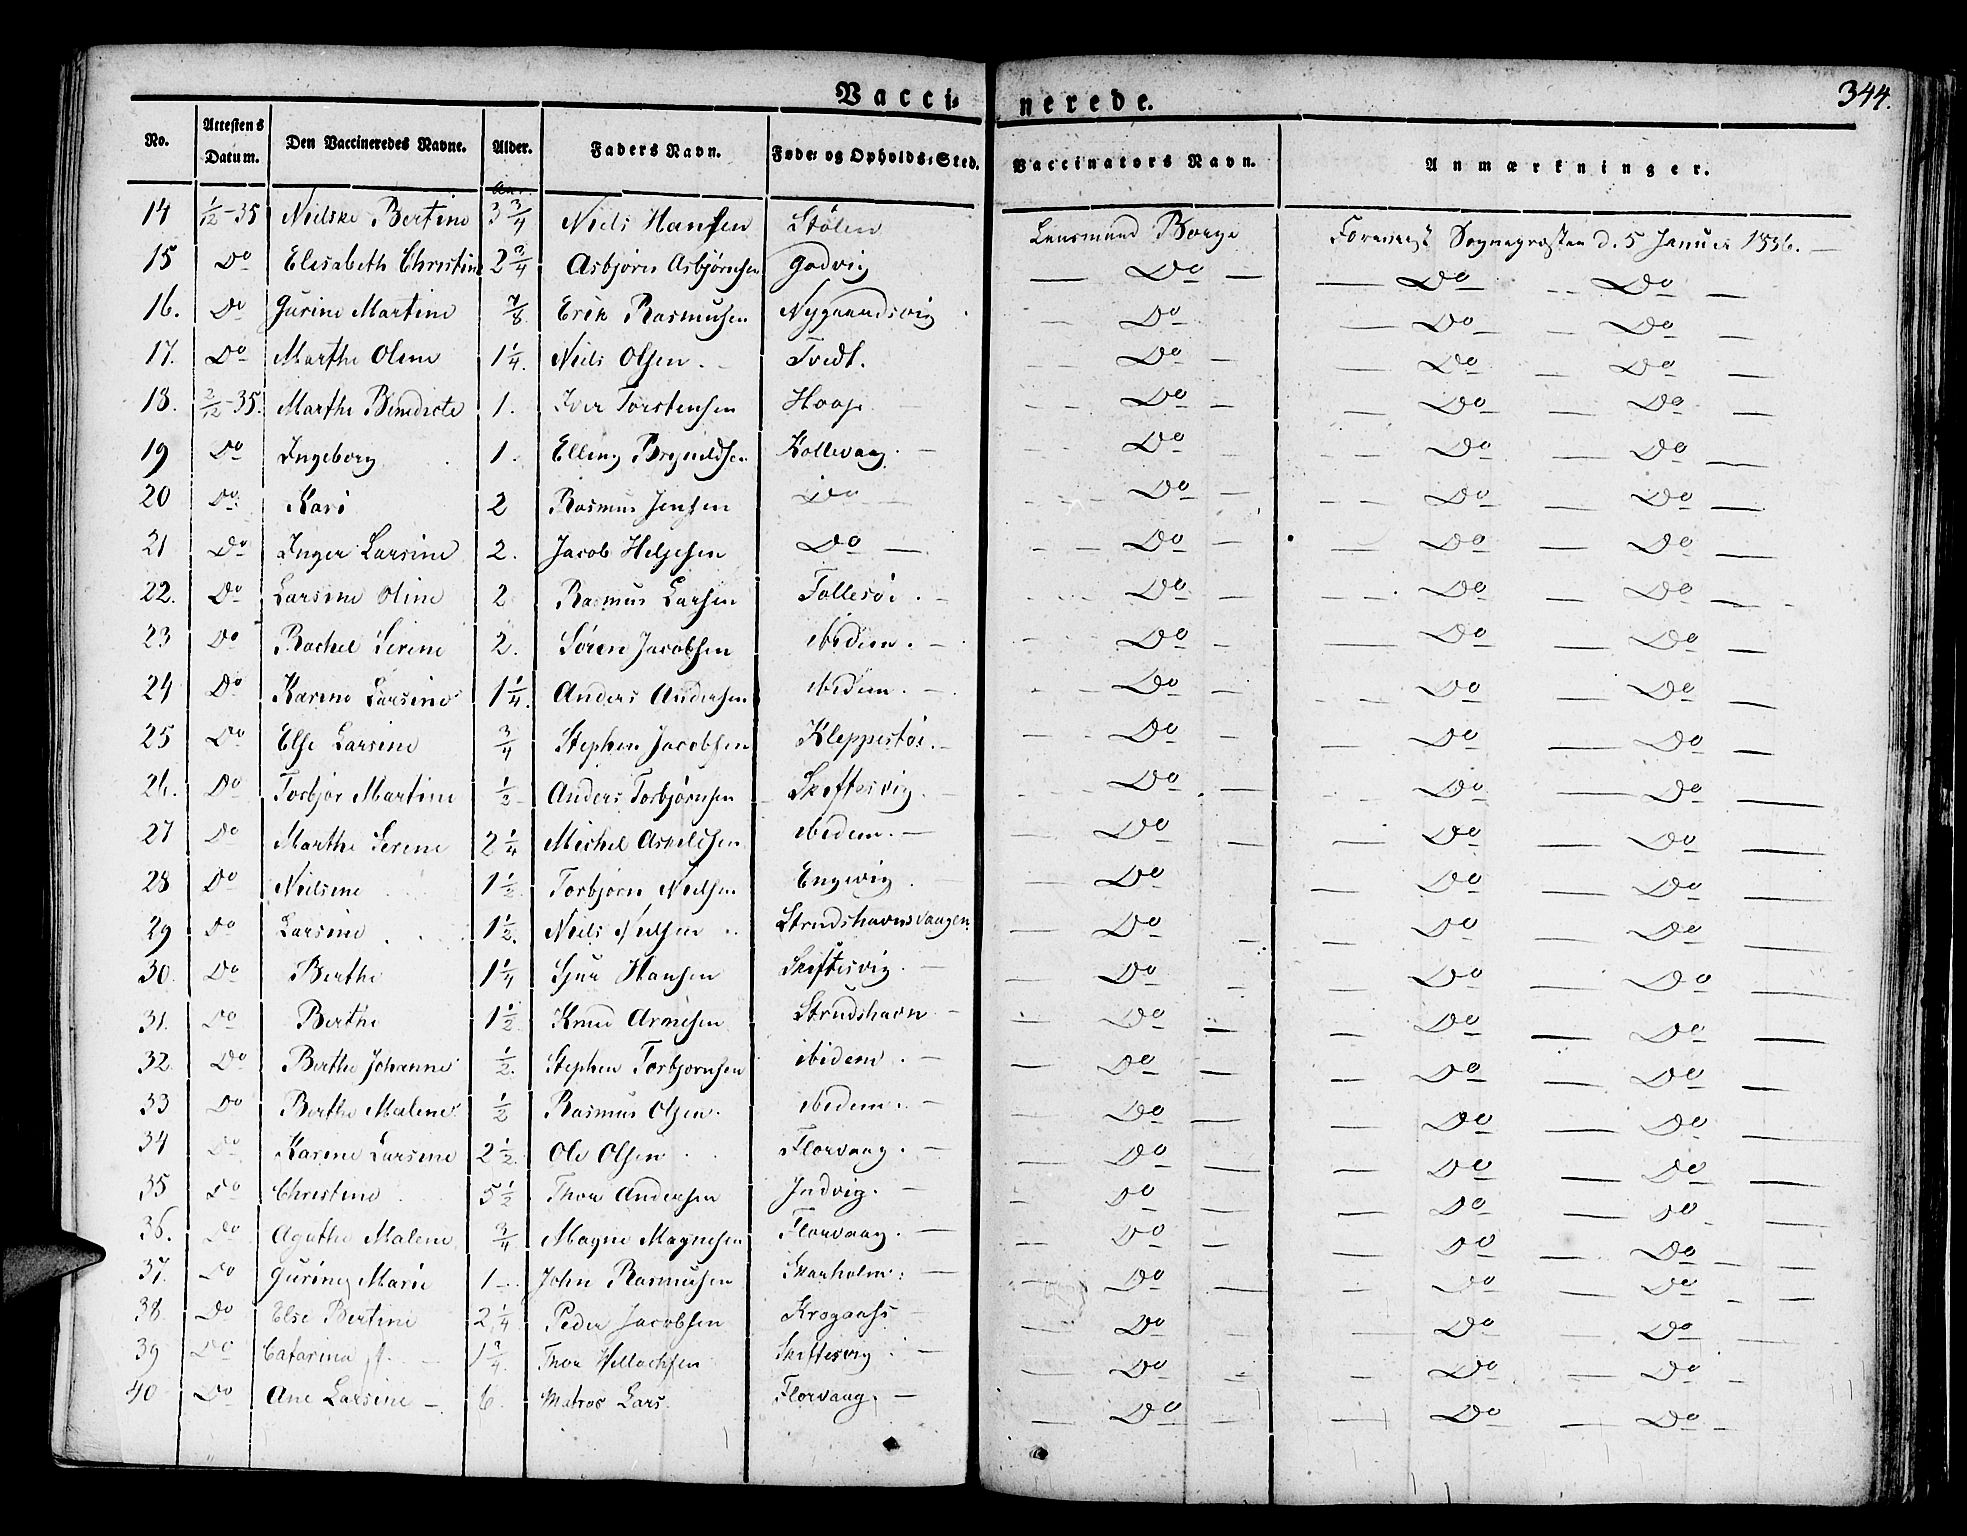 Vaccinerede.
344.
No. | Attestens Datum. | Den Vaccineredes Navne. | Alder. | Faders Navn. | Føde- og Opholds-Sted. | Vaccinators Navn. | Anmærkninger.
Aar.
14 | 1/12-35 | Nielske Bertine | 3 3/4 | Niels Hansen | Stölen | Lensmand Borge | Foreviist Sognepræsten d. 5 Januar 1836.
15 | Do | Elisabeth Christine | 2 3/4 | Asbjörn Asbjörnsen | Godvig | Do | Do Do
16. | Do | Gurine Martine | 7/8 | Erik Rasmusen | Nygaardsvig | Do | Do Do
17. | Do | Marthe Oline | 1 1/4. | Niels Olsen | Tvedt. | Do | Do Do
18. | 2/12-35. | Marthe Benedicte | 1. | Iver Torstensen | Hoop | Do | Do Do
19 | Do | Ingeborg | 1. | Elling Brynildsen | Kollevaag. | Do | Do Do
20 | Do | Kari | 2 | Rasmus Jensen | Do | Do | Do Do
21 | Do | Inger Larsine | 2. | Jacob Helgesen | Do | Do | Do Do
22. | Do | Larsine Oline | 2 | Rasmus Larsen | Follesöi. | Do | Do Do
23 | Do | Rachel Serine | 2. | Sören Jacobsen | ibidem. | Do | Do Do
24 | Do | Karine Larsine | 1 1/4. | Anders Andersen | ibidem. | Do | Do Do
25 | Do | Else Larsine | 3/4 | Stephen Jacobsen | Kleppestöi. | Do | Do Do
26. | Do | Torbjör Martine | 1/2 | Anders Torbjörnsen | Skiftesvig. | Do | Do Do
27 | Do | Marthe Serine | 2 1/4 | Michel Askeldsen | ibidem. | Do | Do Do
28 | Do | Nielsine | 1 1/2 | Torbjörn Nielsen | Engevig | Do | Do Do
29 | Do | Larsine | 1 1/2. | Niels Nielsen | Strudshavnsvaagen. | Do | Do Do
30. | Do | Berthe | 1 1/4 | Sjur Hansen | Skiftesvig. | Do | Do Do
31. | Do | Berthe | 1 1/2 | Knud Arnesen | Strudshavn | Do | Do Do
32. | Do | Berthe Johanne | 1/2. | Stephen Torbjornsen | ibidem. | Do | Do Do
33 | Do | Berthe Malene | 1/2 | Rasmus Olsen. | ibidem. | Do | Do Do
34 | Do | Karine Larsine | 2 1/2. | Ole Olsen | Florvaag. | Do | Do Do
35 | Do | Christine | 5 1/2 | Thor Andersen | Indvig. | Do | Do Do
36. | Do | Agathe Malene | 3/4 | Magne Magnesen | Florvaag. | Do | Do Do
37. | Do | Gurine Marie | 1 | John Rasmusen | Skarholm. | Do | Do Do
38. | Do | Else Bertine | 2 1/4 | Peder Jacobsen | Krogaas | Do | Do Do
39 | Do | Catarina | 1 3/4. | Thor | Skiftesvig. | Do | Do Do
40 | Do | Ane Larsine | 6. | Matros Lars | Florvaag. | Do | Do Do